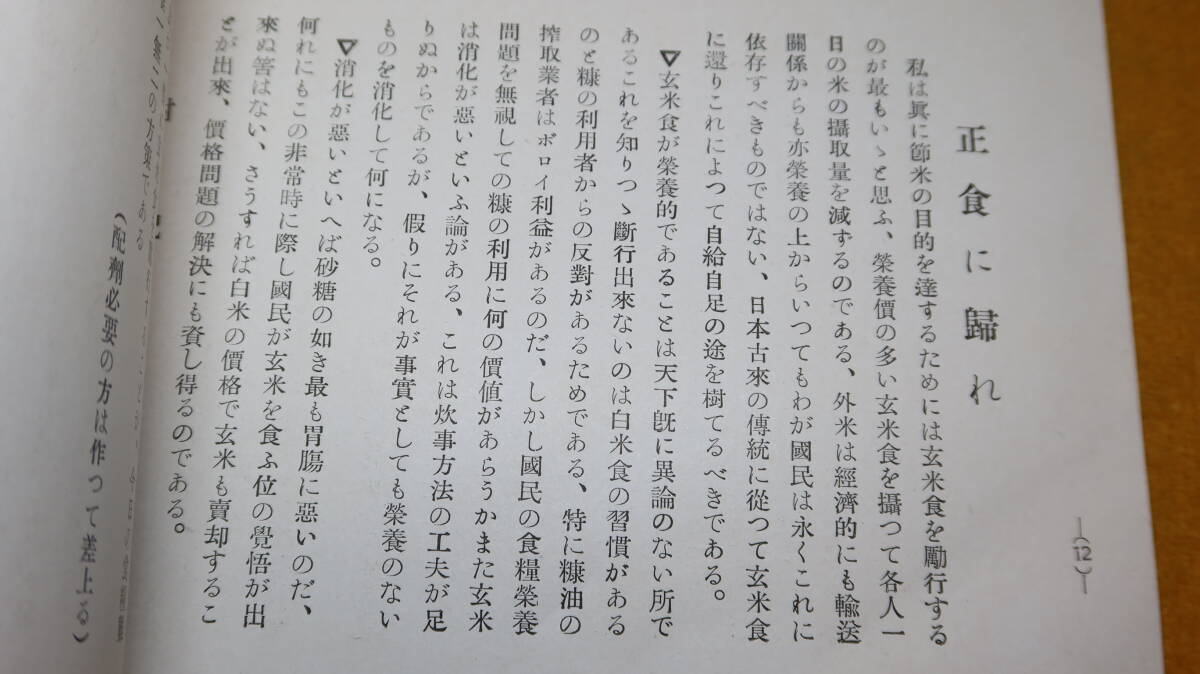 —(12)—
正食に歸れ
私は眞に節米の目的を達するためには玄米食を勵行する
のが最もいゝと思ふ、榮養價の多い玄米食を攝つて各人一
日の米の攝取量を減ずるのである、外米は經濟的にも輸送
關係からも亦榮養の上からいつてもわが國民は永くこれに
依存すべきものではない、日本古來の傳統に從つて玄米食
に還りこれによつて自給自足の途を樹てるべきである。
▽玄米食が榮養的であることは天下旣に異論のない所で
あるこれを知りつゝ斷行出來ないのは白米食の習慣がある
のと糠の利用者からの反對があるためである、特に糠油の
搾取業者はボロイ利益があるのだ、しかし國民の食糧榮養
問題を無視しての糠の利用に何の價値があらうかまた玄米
は消化が惡いといふ論がある、これは炊事方法の工夫が足
りぬからであるが、假りにそれが事實としても榮養のない
ものを消化して何になる。
▽消化が惡いといへば砂糖の如き最も胃腸に惡いのだ、
何れにもこの非常時に際し國民が玄米を食ふ位の覺悟が出
來ぬ筈はない、さうすれば白米の價格で玄米も賣却するこ
とが出來、價格問題の解決にも資し得るのである。
無二の方劑である
(配劑必要の方は作つて差上る)